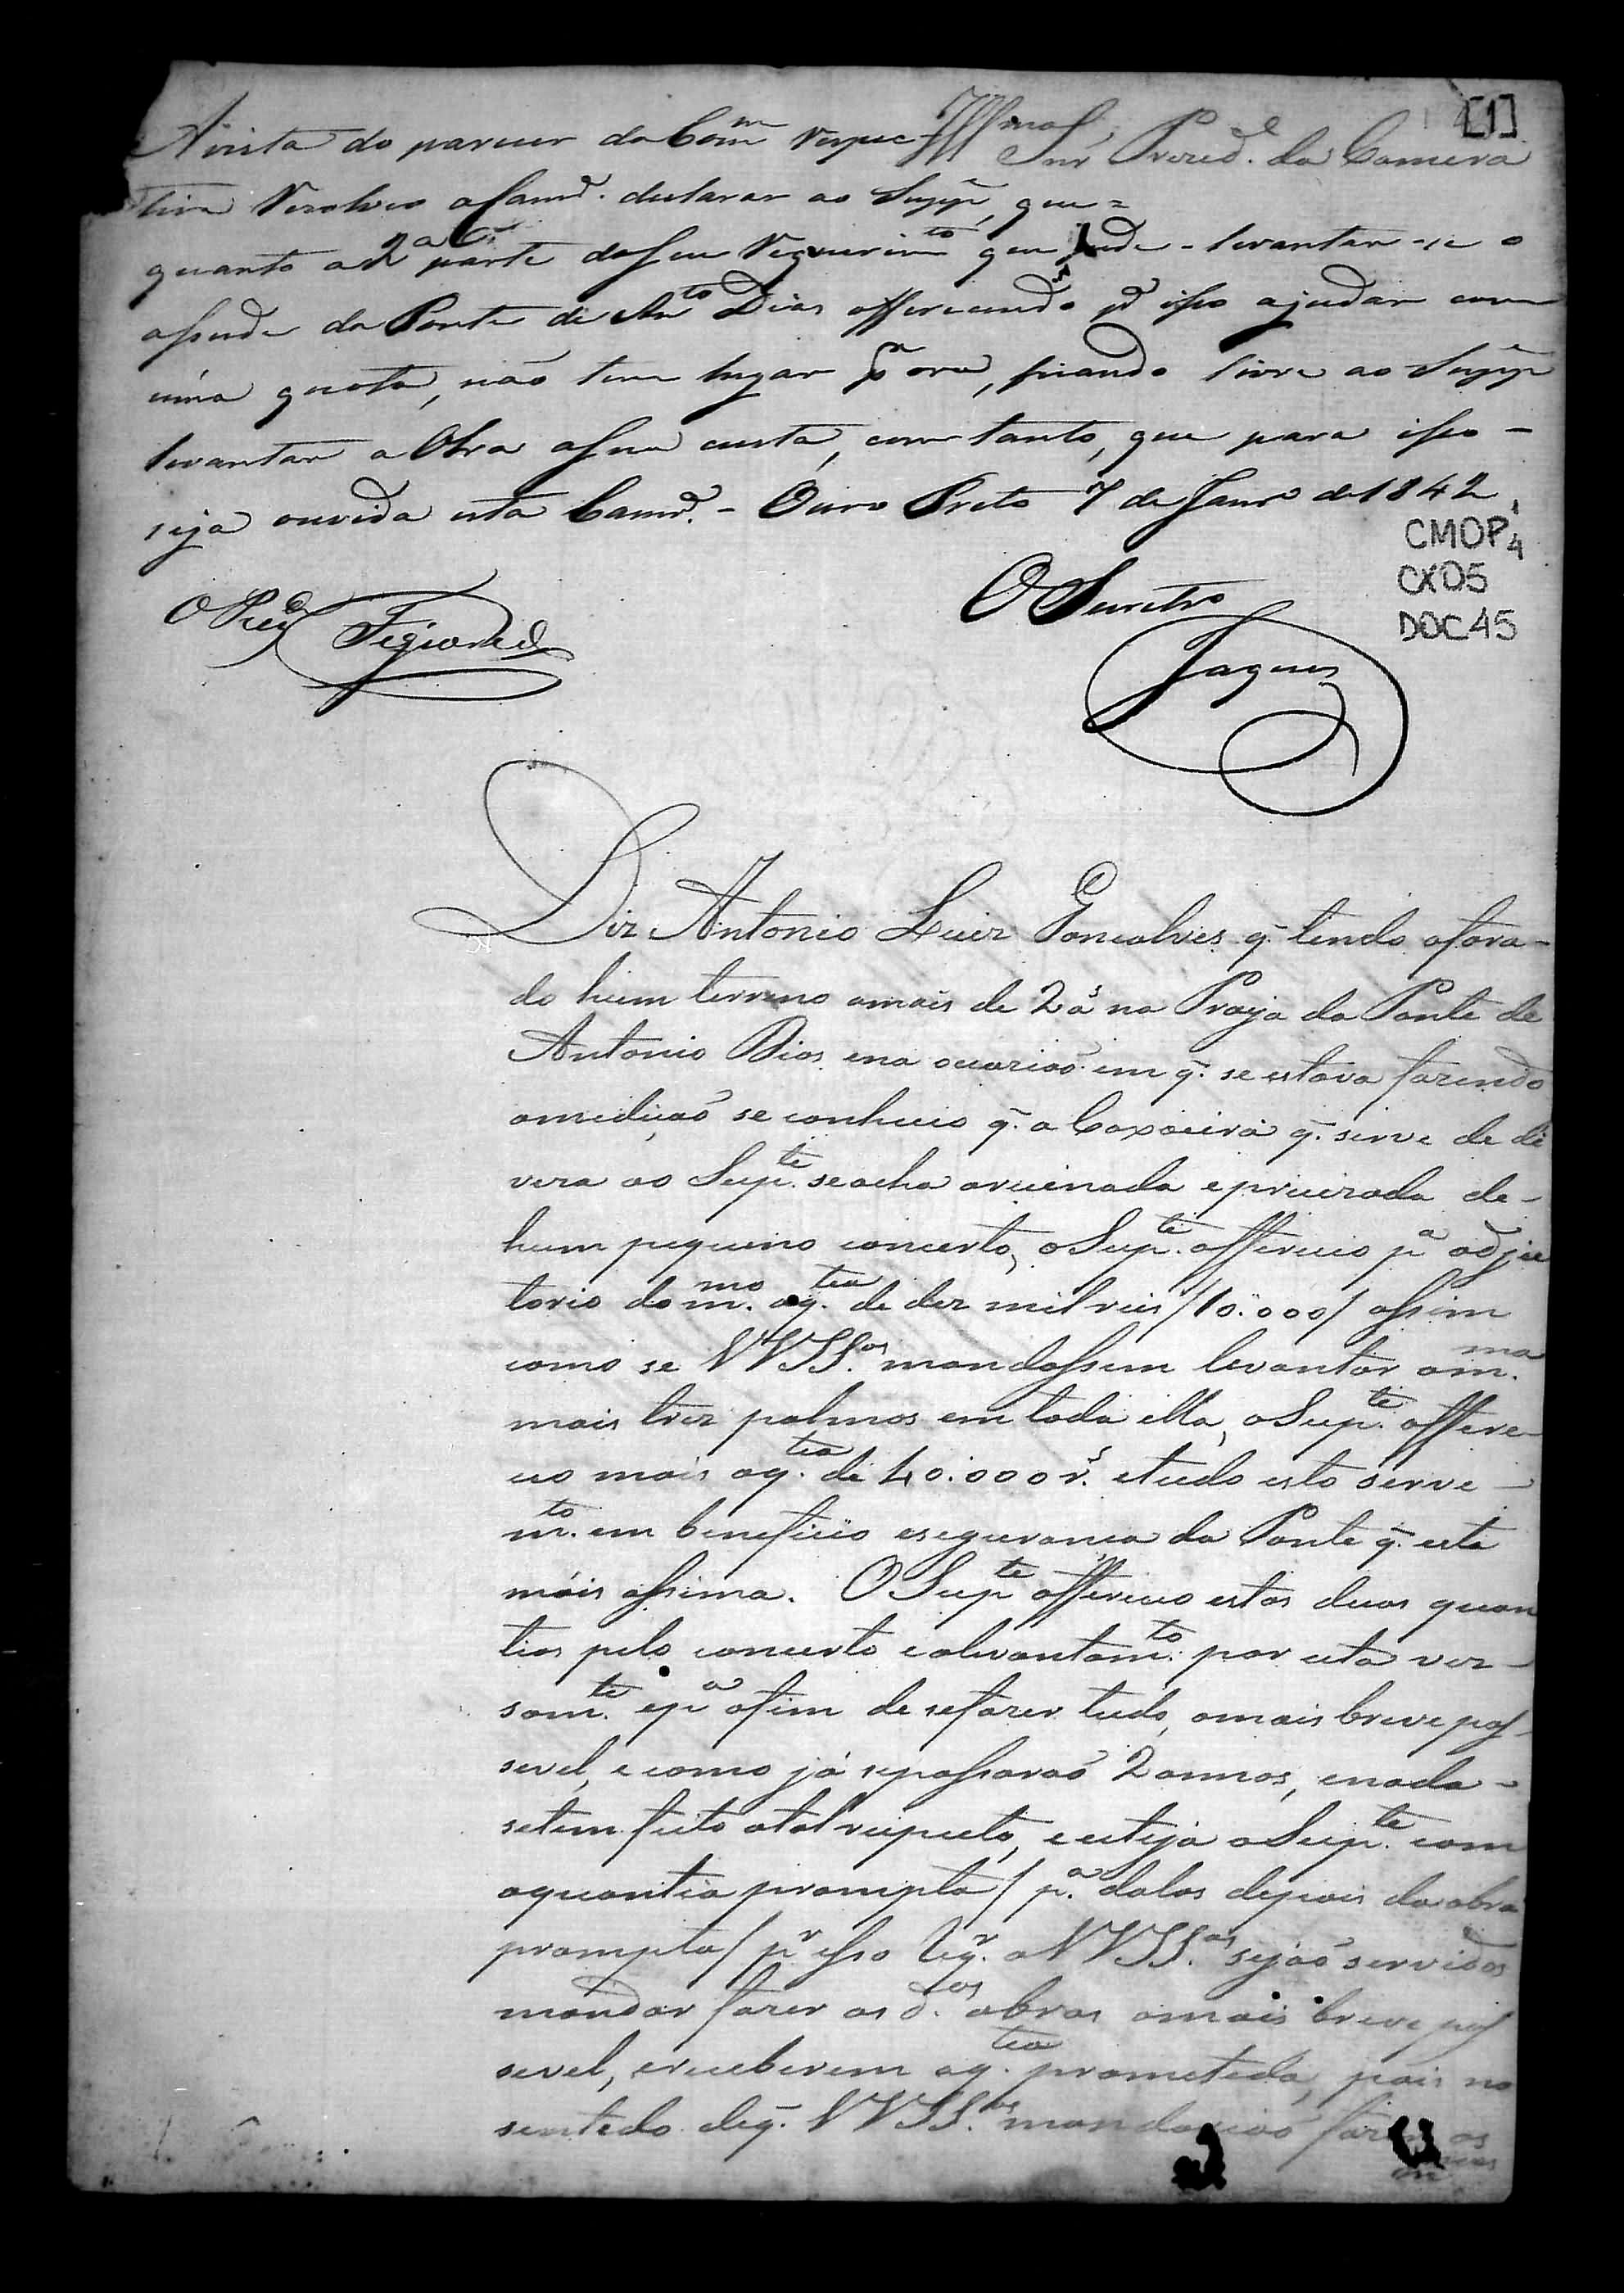 [1]
Illmos Snr Prezide. da Camera
A vista do parecer da Comm respec-
tiva Resolveo a Camr.a declarar ao Suppe, que=
quanto a 2a parte do seu requerimto que pede - levantar-se o
assude da Ponte de Anto Dias offerecendo pa isso ajudar com
uma quota, não tem lugar pr ora, ficando livre ao Suppe
levantar a Obra a sua custa, com tanto, que para isso -
seja ouvida esta Camr.a - Ouro Preto 7 de Janro de 1842
O Prezde Figueiredo
O Secretro
Jaques
CMOP
CX05
DOC45
Diz Antonio Luiz Gonçalves q. tendo afora-
do hum terreno a mais de 2 as na Praya da Ponte de
Antonio Dias, e na occazião em q. se estava fazendo
a medição se conheceo q. a Caxoeira q. serve de di
viza ao Supte. se acha aruinada e precizada de -
hum pequeno concerto, o Supte. offereceo pa adju
torio do mmo. a qtia. de dez mil reis /10:000/ assim
como se VVSSas. mandassem levantar a mma.
mais trez palmos em toda ella, o Supte. offere-
ceo mais a qtia. de 40:000 rs. e tudo isto serve -
mto. em beneficio e segurança da Ponte q. esta
máis assima. O Supte offereceo estas duas quan
tias pelo concerto e alevantamto. por esta vez -
somte. e pa a fim de se fazer tudo, o mais breve pos-
sevel, e como já se passarão 2 annos, e nada -
se tem feito a tal respeito, e esteja o Supte. com
a quantia prompta / pa. dalas depois da obra
prompta / pr isso Reqr. a VVSSas. sejão servidos
mandar fazer as das. obras o mais breve pos
sevel, e receberem a qtia. prometida, pois no
sentido de q. VVSSas. mandarião fazer as